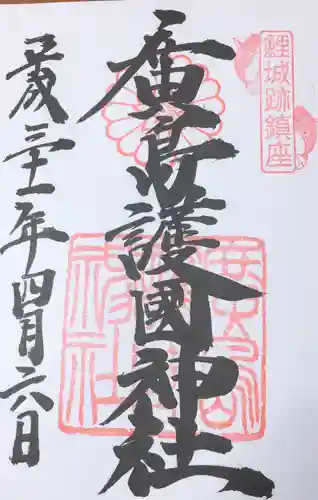 鯉城跡鎮座
廣島護國神社
平成三十一年四月六日